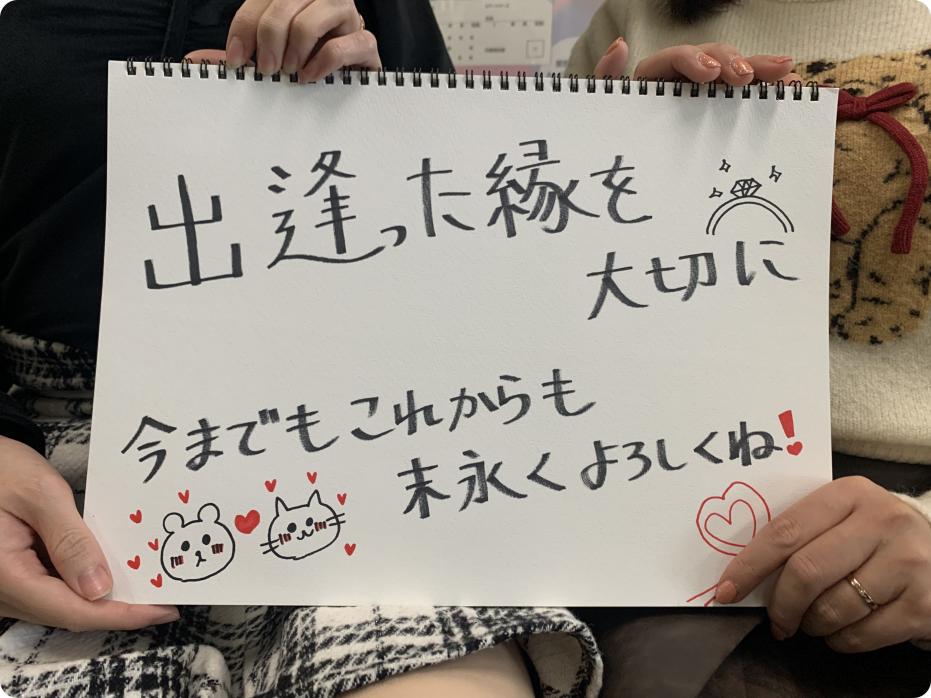 出逢った縁を
大切に
今までもこれからも
末永くよろしくね!